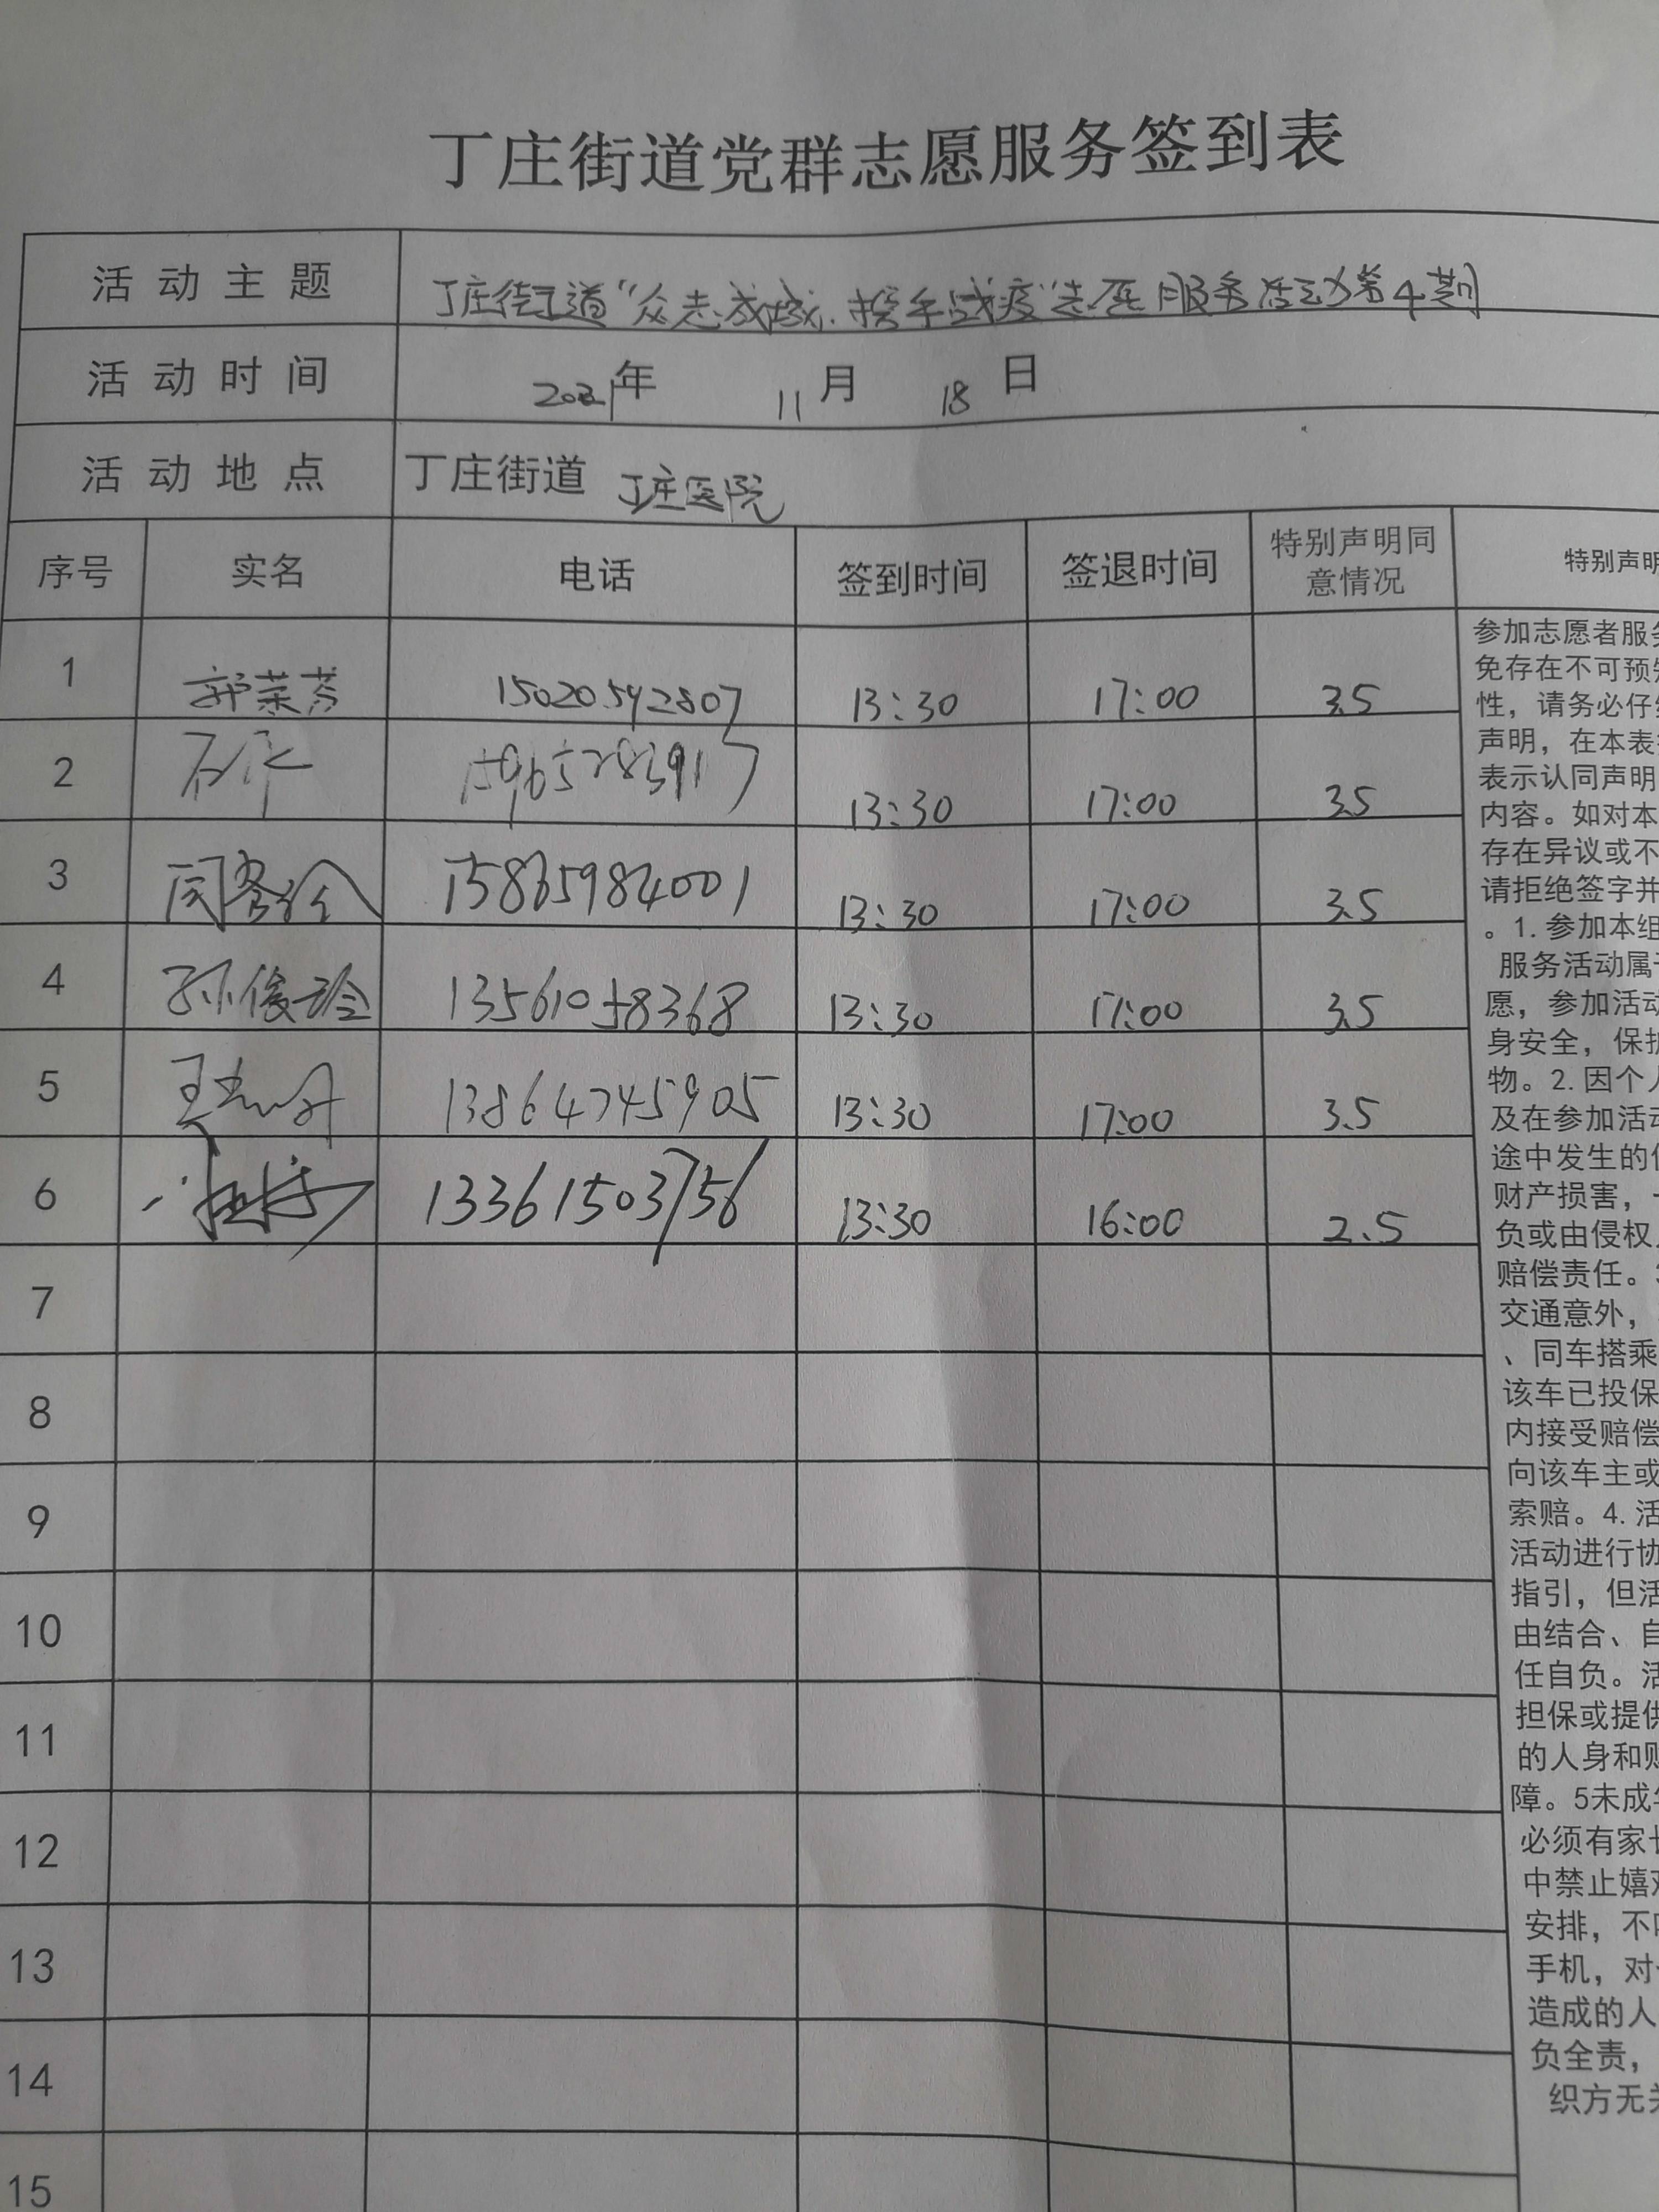 丁庄街道党群志愿服务签到表
活动主题 丁庄街道“众志成城.携手战疫”志愿服务活动第4期
活动时间 2021年 11月 18日
活动地点 丁庄街道 丁庄医院
序号 实名 电话 签到时间 签退时间 特别声明同意情况 特别声明
1 郭荣芬 15020592807 13:30 17:00 3.5
2 15965283917 13:30 17:00 3.5
3 15865984001 13:30 17:00 3.5
4 孙俊玲 13561058368 13:30 17:00 3.5
5 13864745905 13:30 17:00 3.5
6 13361503756 13:30 16:00 2.5
7
8
9
10
11
12
13
14
15
参加志愿者服务
免存在不可预知
性，请务必仔细
声明，在本表
表示认同声明
内容。如对本
存在异议或不
请拒绝签字并
。1.参加本组
服务活动属于
愿，参加活动
身安全，保护
物。2.因个人
及在参加活动
途中发生的
财产损害，
负或由侵权
赔偿责任。
交通意外，
、同车搭乘
该车已投保
内接受赔偿
向该车主或
索赔。4.活
活动进行协
指引，但活
由结合、自
任自负。活
担保或提供
的人身和财
障。5未成年
必须有家长
中禁止嬉戏
安排，不
手机，对
造成的人
负全责，
织方无关